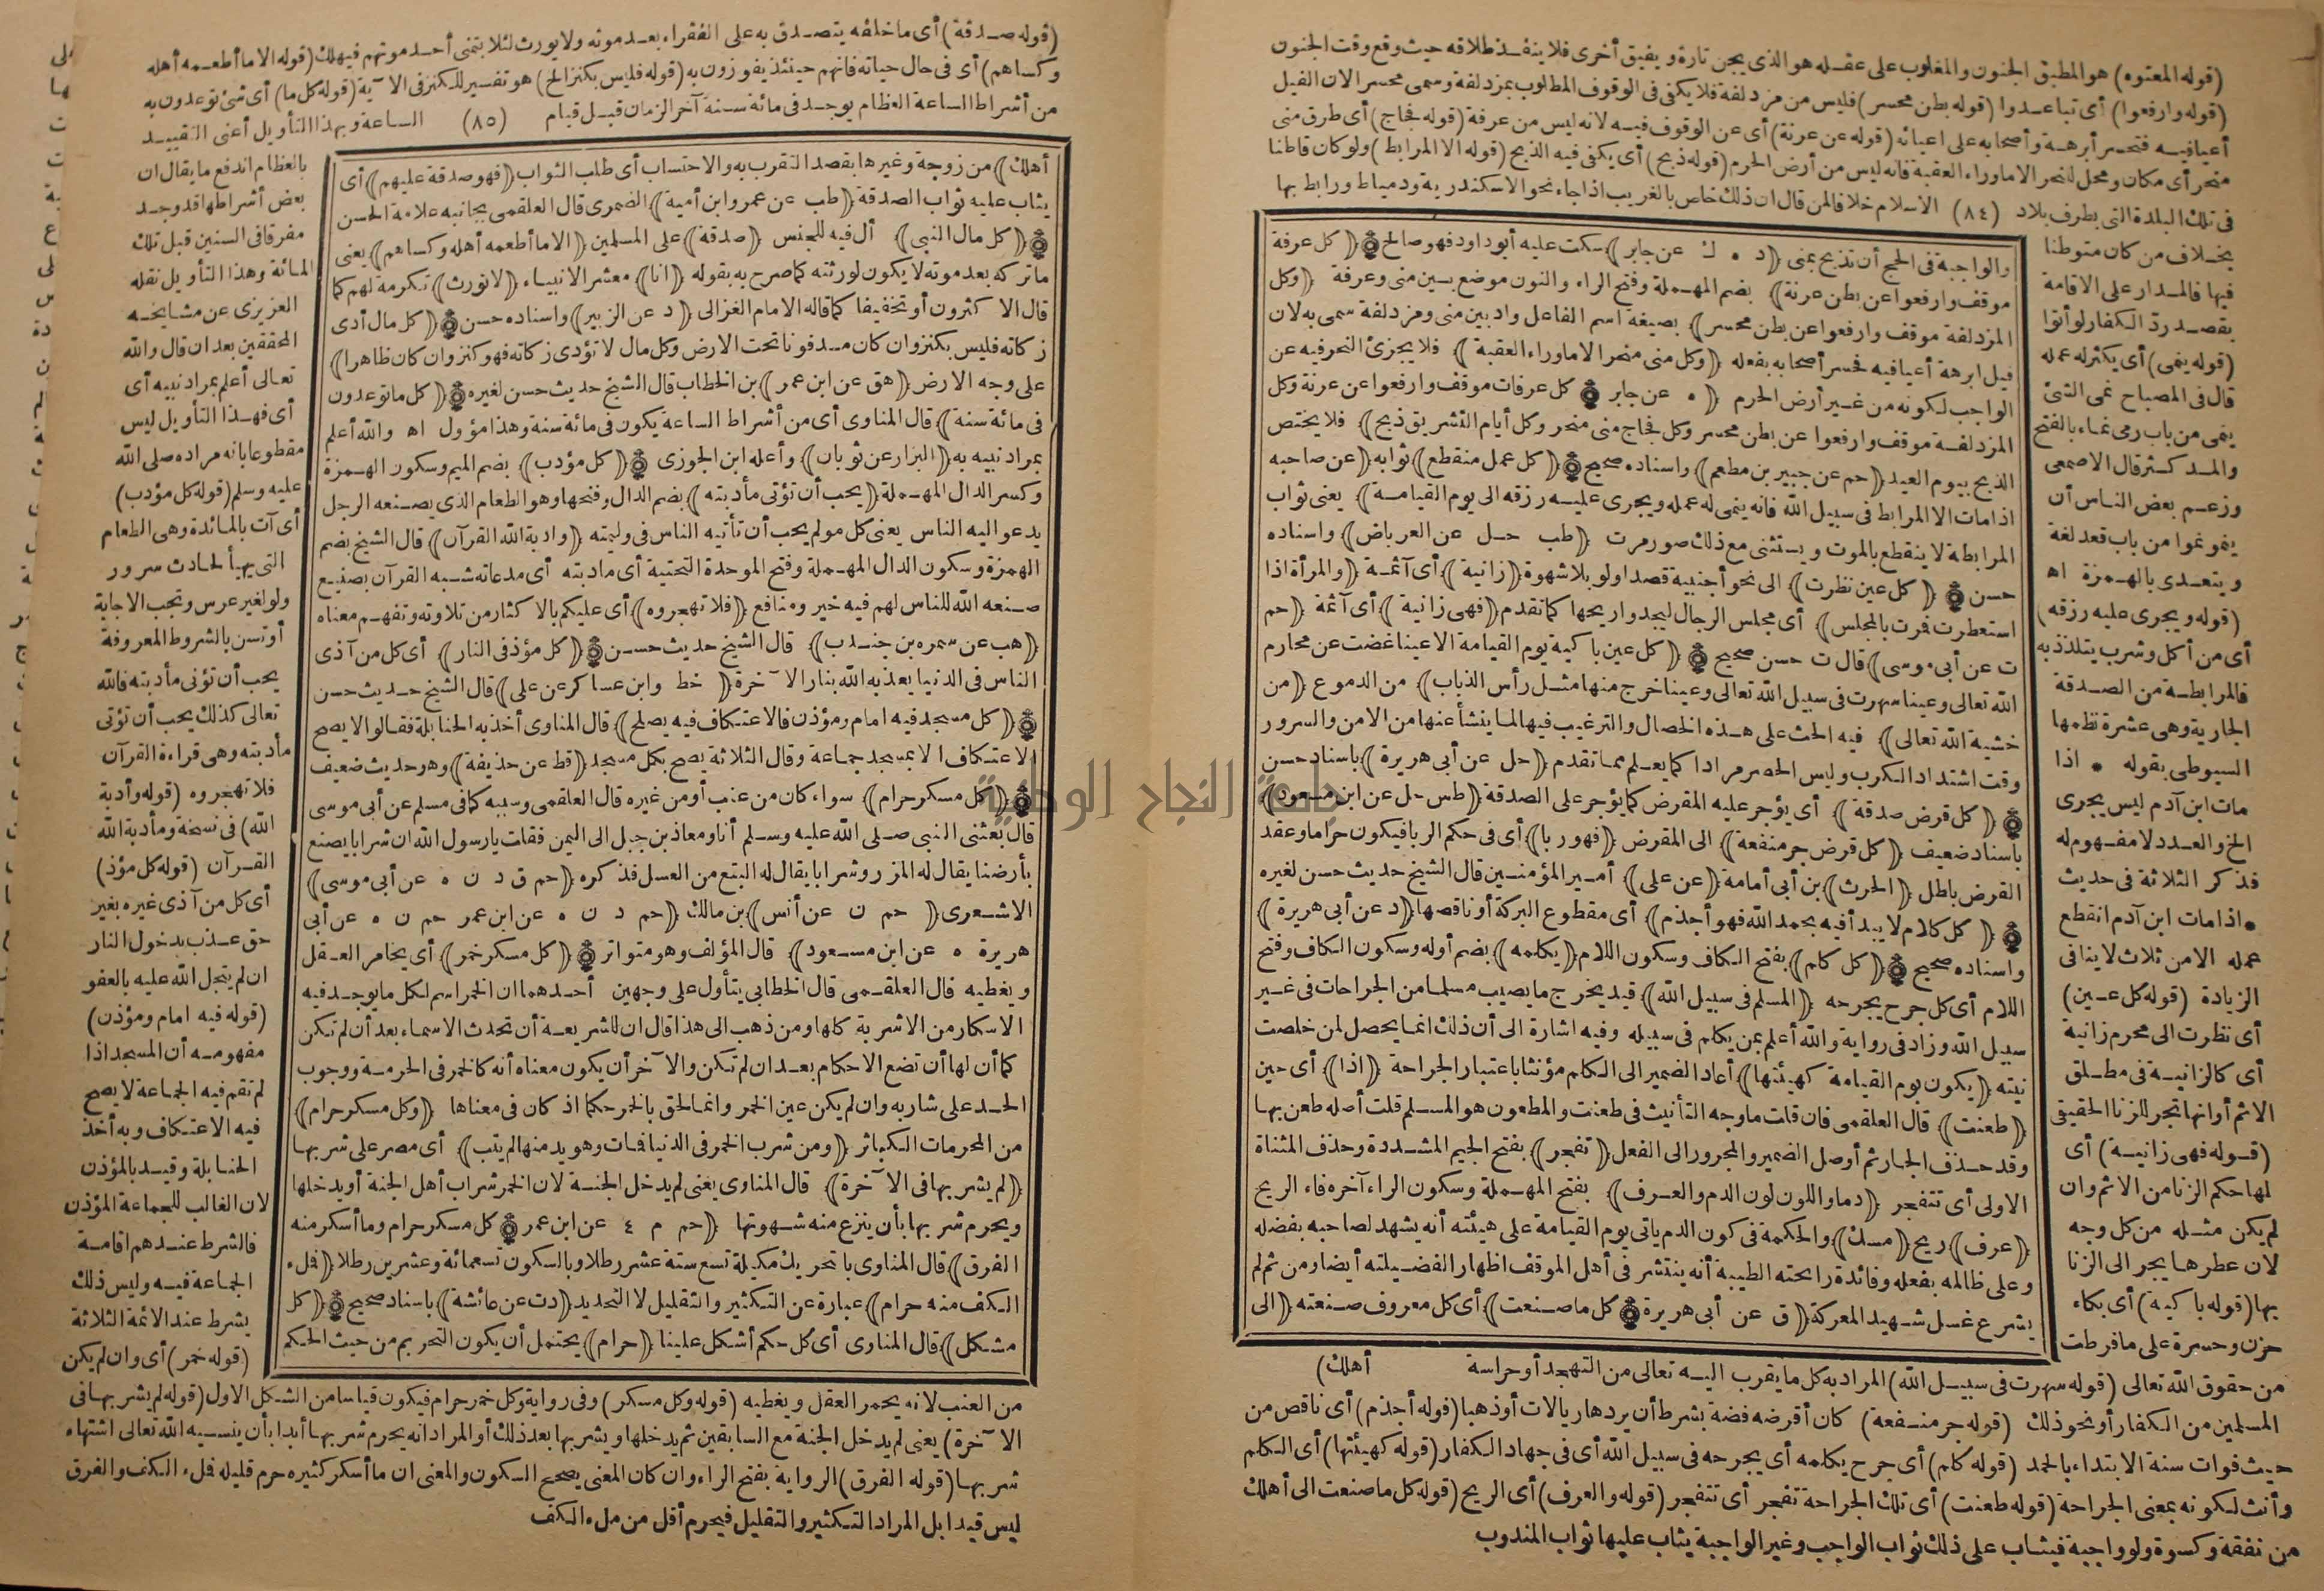 (قوله المعتوه) هو المطبق الجنون والمغلوب على عقله هو الذى يجن تارة ويفيق أخرى فلا ينفذ طلاقه حيث وقع وقت الجنون
(قوله وارفعوا) أى تباعدوا (قوله بطن محسر) فليس من مزدلفة فلا يكفى فى الوقوف المطلوب بمزدلفة وسمى محسرا لان الفيل
أعيا فيه فتحسر أبرهة وأصحابه على اعيائه (قوله عن عرنة) أى عن الوقوف فيه لانه ليس من عرفة (قوله فجاج) أى طرق منى
منحر أى مكان ومحل للنحر الا ما وراء العقبة فانه ليس من أرض الحرم (قوله ذبح) أى يكفى فيه الذبح (قوله الا المرابط) ولو كان قاطنا
فى تلك البلدة التى بطرف بلاد (٨٤) الاسلام خلافا لمن قال ان ذلك خاص بالغريب اذا جاء نحو الاسكندرية ودمياط ورابط بها
بخلاف من كان متوطنا
فيها فالمدار على الاقامة
بقصد رد الكفار لو أتوا
(قوله ينمى) أى يكثر له عمله
قال فى المصباح نمى الشئ
ينمى من باب رمى نماء بالفتح
والمد كثر قال الاصمعى
وزعم بعض الناس أن
ينمو نموا من باب قعد لغة
ويتعدى بالهمزة اه
(قوله ويجرى عليه رزقه)
أى من أكل وشرب يتلذذ به
فالمرابطة من الصدقة
الجارية وهى عشرة نظمها
السيوطى بقوله * اذا
مات ابن آدم ليس يجرى
الخ والعدد لا مفهوم له
فذكر الثلاثة فى حديث
* اذا مات ابن آدم انقطع
عمله الا من ثلاث لا ينافى
الزيادة (قوله كل عين)
أى نظرت الى محرم زانية
أى كالزانية فى مطلق
الاثم أو انها تجر للزنا الحقيقى
(قوله فهى زانية) أى
لها حكم الزنا من الاثم وان
لم يكن مثله من كل وجه
لان عطرها يجر الى الزنا
بها (قوله باكية) أى بكاء
حزن وحسرة على ما فرطت
والواجبة فى الحج أن تذبح بمنى (د ه ك عن جابر) سكت عليه أبو داود فهو صالح (كل عرفة
موقف وارفعوا عن بطن عرنة) بضم المهملة وفتح الراء والنون موضع بين منى وعرفة (وكل
المزدلفة موقف وارفعوا عن بطن محسر) بصيغة اسم الفاعل واد بين منى ومزدلفة سمى به لان
فيل ابرهة أعيا فيه فحسر أصحابه بفعله (وكل منى منحر الا ما وراء العقبة) فلا يجزئ النحر فيه عن
الواجب لكونه من غير أرض الحرم (ه عن جابر كل عرفات موقف وارفعوا عن عرنة وكل
المزدلفة موقف وارفعوا عن بطن محسر وكل فجاج منى منحر وكل أيام التشريق ذبح) فلا يختص
الذبح بيوم العيد (حم عن جبير بن مطعم) واسناده صحيح (كل عمل منقطع) ثوابه (عن صاحبه
اذا مات الا المرابط فى سبيل الله فانه ينمى له عمله ويجرى عليه رزقه الى يوم القيامة) يعنى ثواب
المرابطة لا ينقطع بالموت ويستثنى مع ذلك صور مرت (طب حل عن العرباض) واسناده
حسن (كل عين نظرت) الى نحو أجنبية قصدا ولو بلا شهوة (زانية) أى آثمة (والمرأة اذا
استعطرت فمرت بالمجلس) أى مجلس الرجال ليجدوا ريحها كما تقدم (فهى زانية) أى آثمة (حم
ت عن أبى موسى) قال ت حسن صحيح (كل عين باكية يوم القيامة الا عينا غضت عن محارم
الله تعالى وعينا سهرت فى سبيل الله تعالى وعينا خرج منها مثل رأس الذباب) من الدموع (من
خشية الله تعالى) فيه الحث على هذه الخصال والترغيب فيها لما ينشأ عنها من الامن والسرور
وقت اشتداد الكرب وليس الحصر مرادا كما يعلم مما تقدم (حل عن أبى هريرة) باسناد حسن
(كل قرض صدقة) أى يؤجر عليه المقرض كما يؤجر على الصدقة (طس حل عن ابن مسعود)
باسناد ضعيف (كل قرض جر منفعة) الى المقرض (فهو ربا) أى فى حكم الربا فيكون حراما وعقد
القرض باطل (الحرث) بن أبى أمامة (عن على) أمير المؤمنين قال الشيخ حديث حسن لغيره
(كل كلام لا يبدأ فيه بحمد الله فهو أجذم) أى مقطوع البركة أو ناقصها (د عن أبى هريرة)
واسناده صحيح (كل كلم) بفتح الكاف وسكون اللام (يكلمه) بضم أوله وسكون الكاف وفتح
اللام أى كل جرح يجرحه (المسلم فى سبيل الله) قيد يخرج ما يصيب مسلما من الجراحات فى غير
سبيل الله وزاد فى رواية والله أعلم بمن يكلم فى سبيله وفيه اشارة الى أن ذلك انما يحصل لمن خلصت
نيته (يكون يوم القيامة كهيئتها) أعاد الضمير الى الكلم مؤنثا باعتبار الجراحة (اذا) أى حين
(طعنت) قال العلقمى فان قلت ما وجه التأنيث فى طعنت والمطعون هو المسلم قلت أصله طعن بها
وقد حذف الجار ثم أوصل الضمير والمجرور الى الفعل (تفجر) بفتح الجيم المشددة وحذف المثناة
الاولى أى تتفجر (دما واللون لون الدم والعرف) بفتح المهملة وسكون الراء آخره فاء الريح
(عرف) ريح (مسك) والحكمة فى كون الدم ياتى يوم القيامة على هيئته أنه يشهد لصاحبه بفضله
وعلى ظالمه بفعله وفائدة رائحته الطيبة أنه ينتشر فى أهل الموقف اظهارا لفضيلته أيضا ومن ثم لم
يشرع غسل شهيد المعركة (ق عن أبى هريرة كل ما صنعت) أى كل معروف صنعته (الى
أهلك)
من حقوق الله تعالى (قوله سهرت فى سبيل الله) المراد به كل ما يقرب اليه تعالى من التهجد أو حراسة
المسلمين من الكفار أو نحو ذلك (قوله جر منفعة) كأن أقرضه فضة بشرط أن يردها ريالات أو ذهبا (قوله أجذم) أى ناقص من
حيث فوات سنة الابتداء بالحمد (قوله كلم) أى جرح يكلمه أى يجرحه فى سبيل الله أى فى جهاد الكفار (قوله كهيئتها) أى الكلم
وأنث لكونه بمعنى الجراحة (قوله طعنت) أى تلك الجراحة تفجر أى تتفجر (قوله والعرف) أى الريح (قوله كل ما صنعت الى أهلك
من نفقة وكسوة ولو واجبة فيثاب على ذلك ثواب الواجب وغير الواجبة يثاب عليها ثواب المندوب
(قوله صدقة) أى ما خلفه يتصدق به على الفقراء بعد موته ولا يورث لئلا يتمنى أحد موتهم فيهلك (قوله الا ما أطعمه أهله
وكساهم) أى فى حال حياته فانهم حينئذ يفوزون به (قوله فليس بكنز الخ) هو تفسير للكنز فى الآية (قوله كل ما) أى شئ توعدون به
من أشراط الساعة العظام يوجد فى مائة سنة آخر الزمان قبيل قيام (٨٥) الساعة وبهذا التأويل أعنى التقييد
أهلك) من زوجة وغيرها بقصد التقرب به والاحتساب أى طلب الثواب (فهو صدقة عليهم) أى
يثاب عليه ثواب الصدقة (طب عن عمرو ابن أمية) الضمرى قال العلقمى بجانبه علامة الحسن
(كل مال النبى) أل فيه للجنس (صدقة) على المسلمين (الا ما أطعمه أهله وكساهم) يعنى
ما تركه بعد موته لا يكون لورثته كما صرح به بقوله (انا) معشر الانبياء (لا نورث) تكرمة لهم كما
قال الاكثرون أو تخفيفا كما قاله الامام الغزالى (د عن الزبير) واسناده حسن (كل مال أدى
زكاته فليس بكنز وان كان مدفونا تحت الارض وكل مال لا تؤدى زكاته فهو كنز وان كان ظاهرا)
على وجه الارض (هق عن ابن عمر) بن الخطاب قال الشيخ حديث حسن لغيره (كل ما توعدون
فى مائة سنة) قال المناوى أى من أشراط الساعة يكون فى مائة سنة وهذا مؤول اه والله أعلم
بمراد نبيه به (البزار عن ثوبان) وأعله ابن الجوزى (كل مؤدب) بضم الميم وسكون الهمزة
وكسر الدال المهملة (يحب أن تؤتى مأدبته) بضم الدال وفتحها وهو الطعام الذى يصنعه الرجل
يدعو اليه الناس يعنى كل مولم يحب أن تأتيه الناس فى وليمته (وادبة الله القرآن) قال الشيخ بضم
الهمزة وسكون الدال المهملة وفتح الموحدة التحتية أى مادبته أى مدعاته شبه القرآن بصنيع
صنعه الله للناس لهم فيه خير ومنافع (فلا تهجروه) أى عليكم بالاكثار من تلاوته وتفهم معناه
(هب عن سمره بن جندب) قال الشيخ حديث حسن (كل مؤذ فى النار) أى كل من آذى
الناس فى الدنيا يعذبه الله بنار الآخرة (خط وابن عساكر عن على) قال الشيخ حديث حسن
(كل مسجد فيه امام ومؤذن فالاعتكاف فيه يصلح) قال المناوى أخذ به الحنابلة فقالوا لا يصح
الاعتكاف الا بمسجد جماعة وقال الثلاثة يصح بكل مسجد (قط عن حذيفة) وهو حديث ضعيف
(كل مسكر حرام) سواء كان من عنب أو من غيره قال العلقمى وسببه كما فى مسلم عن أبى موسى
قال بعثنى النبى صلى الله عليه وسلم أنا ومعاذ بن جبل الى اليمن فقلت يا رسول الله ان شرابا يصنع
بأرضنا يقال له المزر وشرابا يقال له البتع من العسل فذكره (حم ق د ن ه عن أبى موسى)
الاشعرى (حم ن عن أنس) بن مالك (حم د ن ه عن ابن عمر حم ن ه عن أبى
هريرة ه عن ابن مسعود) قال المؤلف وهو متواتر (كل مسكر خمر) أى يخامر العقل
ويغطيه قال العلقمى قال الخطابى يتأول على وجهين أحدهما ان الخمر اسم لكل ما يوجد فيه
الاسكار من الاشربة كلها ومن ذهب الى هذا قال ان للشريعة أن تحدث الاسماء بعد أن لم تكن
كما أن لها أن تضع الاحكام بعد ان لم تكن والآخر أن يكون معناه أنه كالخمر فى الحرمة ووجوب
الحد على شاربه وان لم يكن عين الخمر وانما لحق بالخمر حكما اذ كان فى معناها (وكل مسكر حرام)
من المحرمات الكبائر (ومن شرب الخمر فى الدنيا فمات وهو يدمنها لم يتب) أى مصر على شربها
(لم يشربها فى الآخرة) قال المناوى يعنى لم يدخل الجنة لان الخمر شراب أهل الجنة أو يدخلها
ويحرم شربها بأن ينزع منه شهوتها (حم م ٤ عن ابن عمر كل مسكر حرام وما أسكر منه
الفرق) قال المناوى بالتحريك مكيلة تسع ستة عشر رطلا وبالسكون تسعمائة وعشرين رطلا (فملء
الكف منه حرام) عبارة عن التكثير والتقليل لا التحديد (دت عن عائشة) باسناد صحيح (كل
مشكل) قال المناوى أى كل حكم أشكل علينا (حرام) يحتمل أن يكون التحريم من حيث الحكم
بالعظام اندفع ما يقال ان
بعض أشراطها قد وجد
مفرقا فى السنين قبل تلك
المائة وهذا التأويل نقله
العزيزى عن مشايخه
المحققين بعد ان قال والله
تعالى أعلم بمراد نبيه أى
أى فهذا التأويل ليس
مقطوعا بانه مراده صلى الله
عليه وسلم (قوله كل مؤدب)
أى آت بالمائدة وهى الطعام
التى يهيأ لحادث سرور
ولو لغير عرس وتجب الاجابة
أو تسن بالشروط المعروفة
يحب أن تؤتى مأدبته فالله
تعالى كذلك يحب أن تؤتى
مأدبته وهى قراءة القرآن
فلا تهجروه (قوله وأدبة
الله) فى نسخة ومأدبة الله
القرآن (قوله كل مؤذ)
أى كل من آذى غيره بغير
حق عذب بدخول النار
ان لم يتجل الله عليه بالعفو
(قوله فيه امام ومؤذن)
مفهومه أن المسجد اذا
لم تقم فيه الجماعة لا يصح
فيه الاعتكاف وبه أخذ
الحنابلة وقيد بالمؤذن
لان الغالب للجماعة المؤذن
فالشرط عندهم اقامة
الجماعة فيه وليس ذلك
بشرط عند الائمة الثلاثة
(قوله خمر) أى وان لم يكن
من العنب لانه يخمر العقل ويغطيه (قوله وكل مسكر) وفى رواية وكل خمر حرام فيكون قياسا من الشكل الاول (قوله لم يشربها فى
الآخرة) يعنى لم يدخل الجنة مع السابقين ثم يدخلها ويشربها بعد ذلك أو المراد انه يحرم شربها أبدا بأن ينسيه الله تعالى اشتهاء
شربها (قوله الفرق) الرواية بفتح الراء وان كان المعنى يصح مع السكون والمعنى ان ما أسكر كثيره حرم قليله فملء الكف والفرق
ليس قيدا بل المراد التكثير والتقليل فيحرم أقل من ملء الكف
جامعة النجاح الوطنية